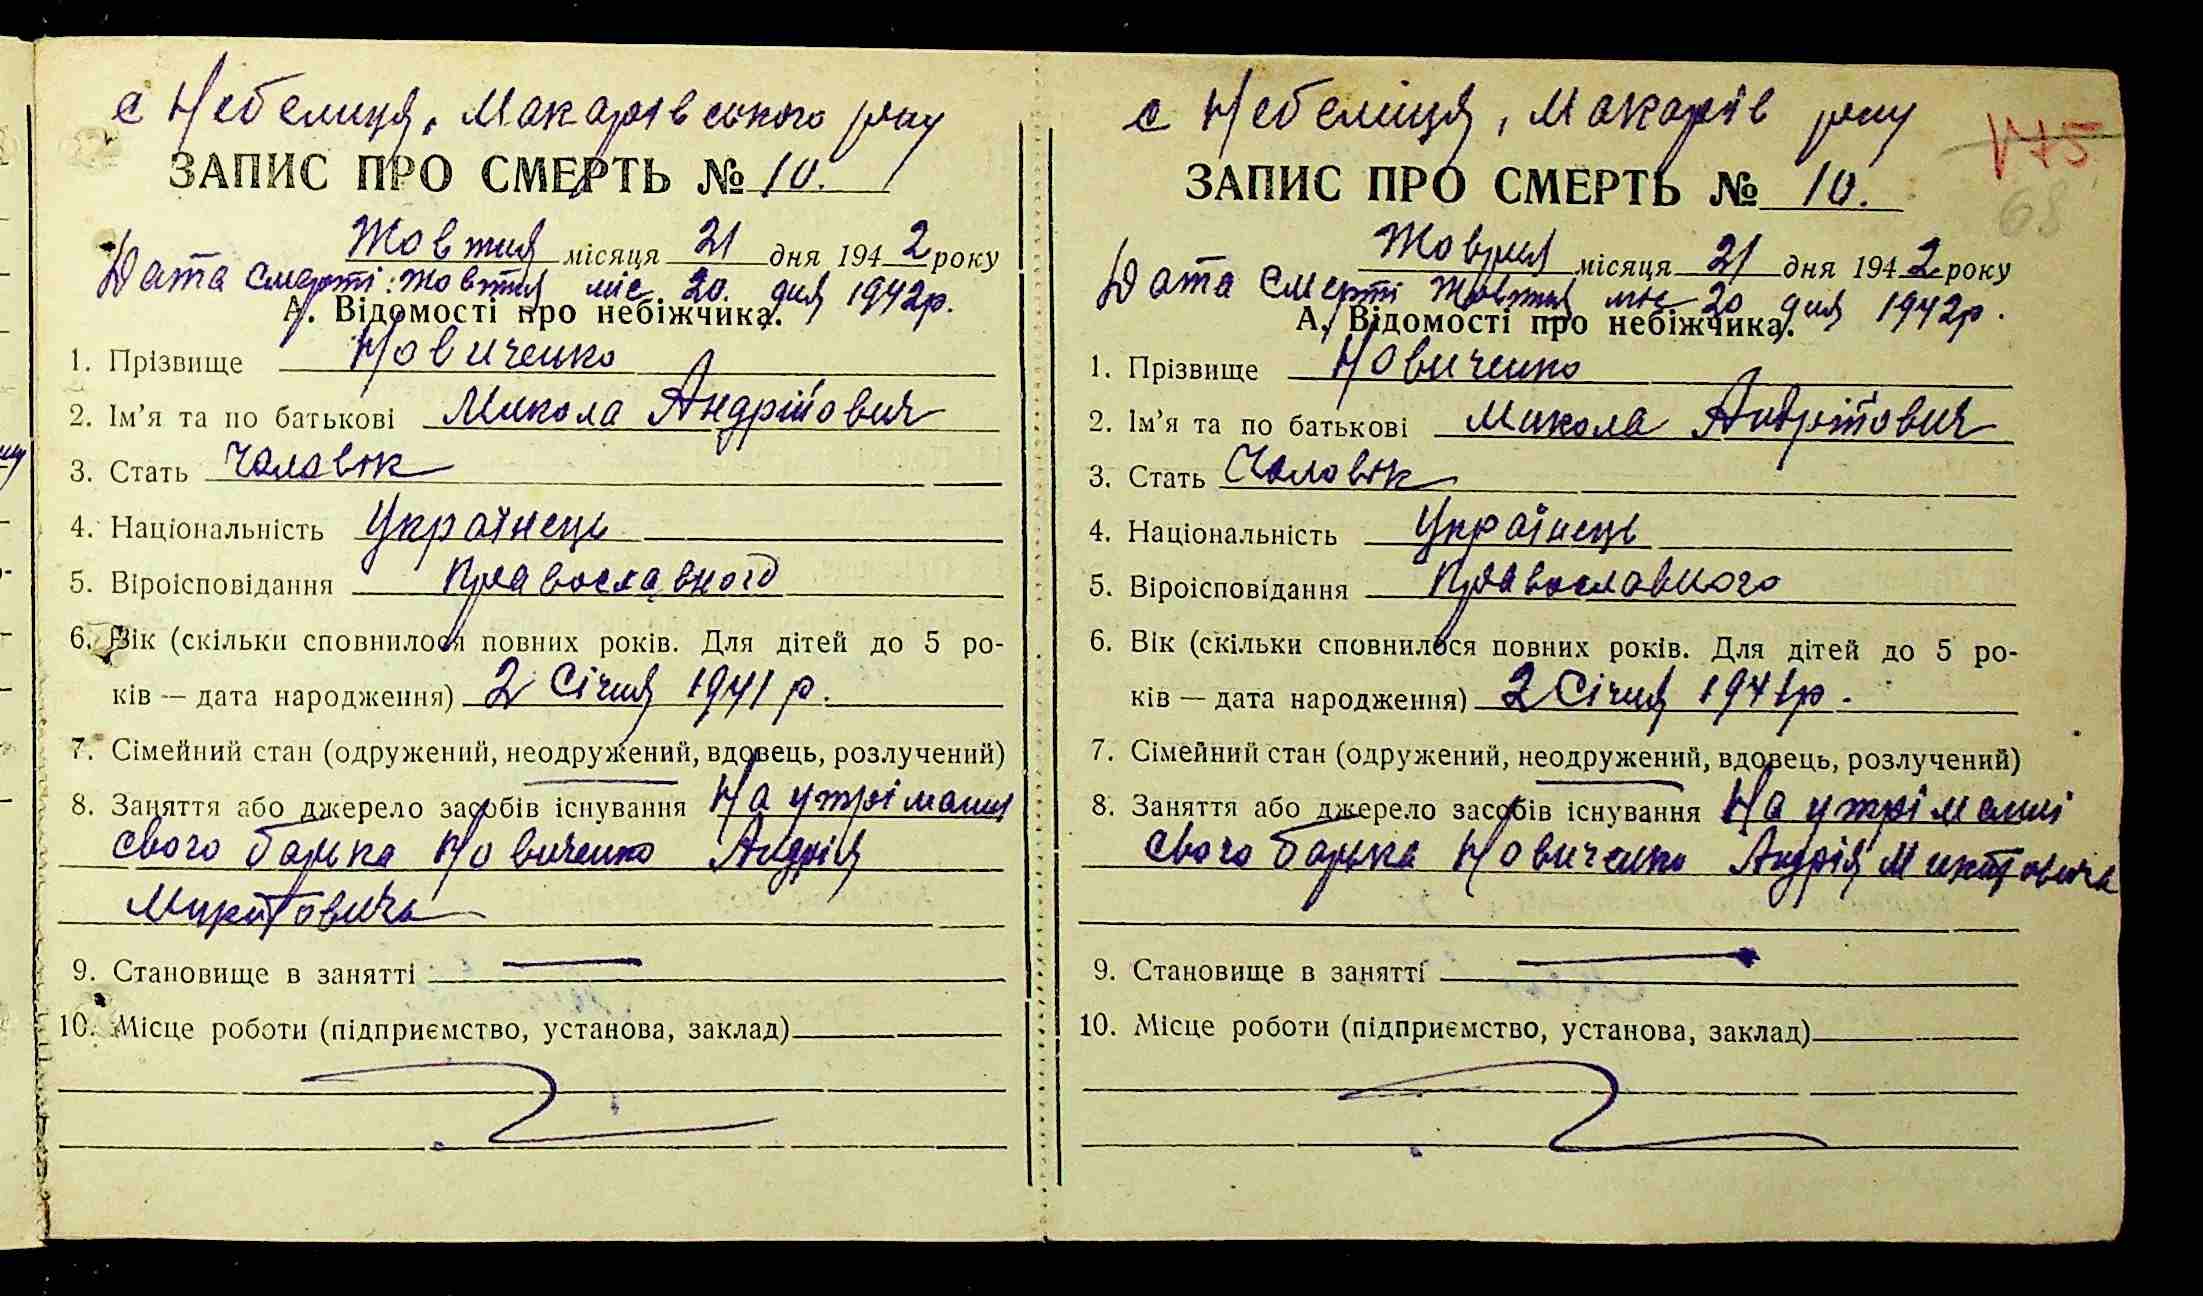 с Небелиця, Макарівського р-ну
ЗАПИС ПРО СМЕРТЬ № 10.
Жовтня місяця 21 дня 1942 року
Дата смерті: Жовтня міс 20. дня 1942р.
А. Відомості про небіжчика.
1. Прізвище Новиченко
2. Ім'я та по батькові Микола Андрійович
3. Стать Чоловік
4. Національність Українець
5. Віроісповідання Православного
6. Вік (скільки сповнилося повних років. Для дітей до 5 ро-
ків — дата народження) 2 Січня 1941 р.
7. Сімейний стан (одружений, неодружений, вдовець, розлучений)
8. Заняття або джерело засобів існування На утрімання
свого батька Новиченко Андрія
9. Становище в занятті —
10. Місце роботи (підприємство, установа, заклад)
с Небеліця, Макарів р-ну
ЗАПИС ПРО СМЕРТЬ № 10.
Жовтня місяця 21 дня 1942 року
Дата смерті Жовтня міс 20 дня 1942р.
А. Відомості про небіжчика.
1. Прізвище Новиченко
2. Ім'я та по батькові Микола Андрійович
3. Стать Чоловік
4. Національність Українець
5. Віроісповідання Православного
6. Вік (скільки сповнилося повних років. Для дітей до 5 ро-
ків — дата народження) 2 Січня 1941р.
7. Сімейний стан (одружений, неодружений, вдовець, розлучений)
8. Заняття або джерело засобів існування На утріманні
свого батька Новиченко Андрія
9. Становище в занятті —
10. Місце роботи (підприємство, установа, заклад)
175
68